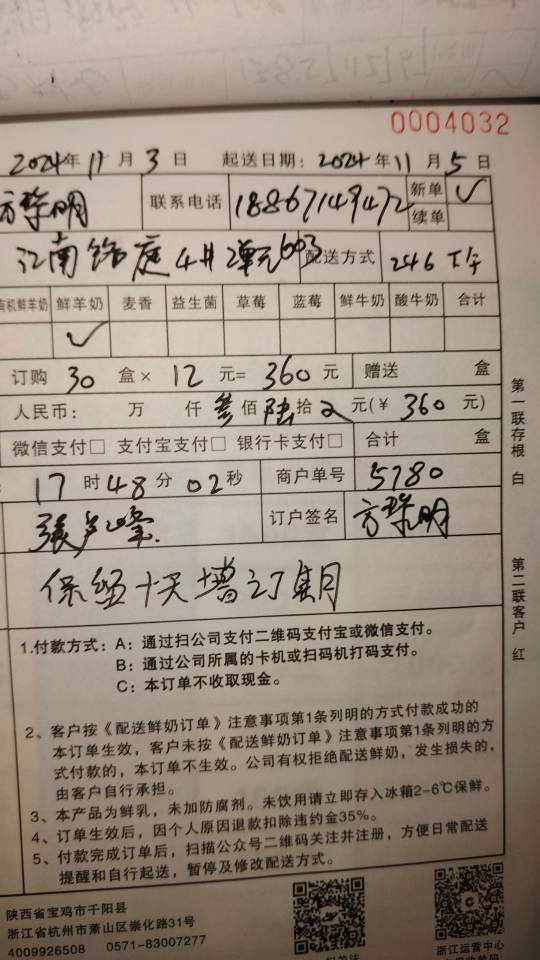 0004032
2024年11月3日 起送日期：2024年11月5日
方黎明 联系电话 18867149472 新单 ✓
续单
江南 庭 4#2单元603 配送方式 246 下午
有机鲜羊奶 鲜羊奶 麦香 益生菌 草莓 蓝莓 鲜牛奶 酸牛奶 合计
✓
订购 30 盒× 12 元= 360 元 赠送 盒
人民币： 万 仟 叁佰陆拾 元(￥ 360 元)
微信支付□ 支付宝支付□ 银行卡支付□ 合计 盒
17时48分02秒 商户单号 5780
张 订户签名 方黎明
订期
1.付款方式：A：通过扫公司支付二维码支付宝或微信支付。
B：通过公司所属的卡机或扫码机打码支付。
C：本订单不收取现金。
2、客户按《配送鲜奶订单》注意事项第1条列明的方式付款成功的
本订单生效，客户未按《配送鲜奶订单》注意事项第1条列明的方
式付款的，本订单不生效。公司有权拒绝配送鲜奶，发生损失的，
由客户自行承担。
3、本产品为鲜乳，未加防腐剂。未饮用请立即存入冰箱2-6℃保鲜。
4、订单生效后，因个人原因退款扣除违约金35%。
5、付款完成订单后，扫描公众号二维码关注并注册，方便日常配送
提醒和自行起送，暂停及修改配送方式。
陕西省宝鸡市千阳县
浙江省杭州市萧山区崇化路31号
4009926508 0571-83007277
浙江运营中心
第一联存根 白
第二联客户 红